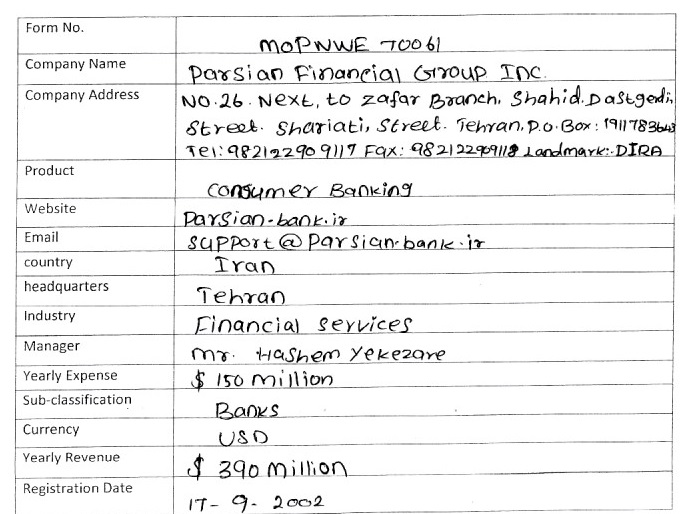 Form No. MOPNWE 70061
Company Name Parsian Financial Group Inc.
Company Address NO.26. Next, to zafar Branch, Shahid. Dastgerdi,
Street. Shariati, Street. Tehran, P.O. Box: 1911783643
Tel: 982122909117 Fax: 982122909118 Landmark:- DIRA
Product Consumer Banking
Website Parsian-bank.ir
Email support@parsian-bank.ir
country Iran
headquarters Tehran
Industry Financial services
Manager Mr. Hashem Yekezare
Yearly Expense $ 150 million
Sub-classification Banks
Currency USD
Yearly Revenue $ 390 million
Registration Date 17- 9- 2002